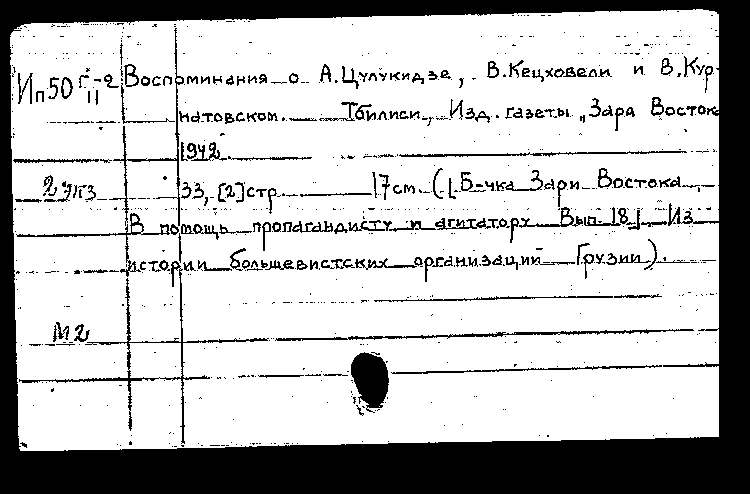 Ип50 Г-2 Воспоминания о А.Цулукидзе, В.Кецховели и В.Кур-
II
натовском. Тбилиси, Изд. газеты „Заря Востока
1942
2 экз 33, [2] стр 17 см. ([Б-чка Зари Востока,
В помощь пропагандисту и агитатору Вып. 18]. Из
истории большевистских организаций Грузии).
М2